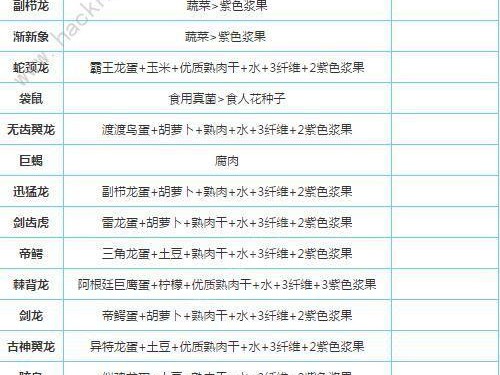 副栉龙 蔬菜>紫色浆果
渐新象 蔬菜>紫色浆果
蛇颈龙 霸王龙蛋+玉米+优质熟肉干+水+3纤维+2紫色浆果
袋鼠 食用真菌>食人花种子
无齿翼龙 渡渡鸟蛋+胡萝卜+熟肉干+水+3纤维+2紫色浆果
巨蝎 腐肉
迅猛龙 副栉龙蛋+胡萝卜+熟肉干+水+3纤维+2紫色浆果
剑齿虎 雷龙蛋+胡萝卜+熟肉干+水+3纤维+2紫色浆果
帝鳄 三角龙蛋+土豆+熟肉干+水+3纤维+2紫色浆果
棘背龙 阿根廷巨鹰蛋+柠檬+优质熟肉干+水+3纤维+3紫色浆果
剑龙 帝鳄蛋+胡萝卜+熟肉干+水+3纤维+2紫色浆果
古神翼龙 异特龙蛋+土豆+优质熟肉干+水+3纤维+2紫色浆果